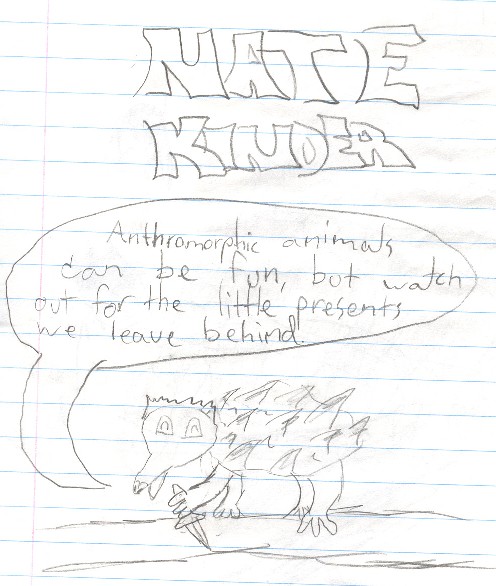 NATE
KINDER
Anthromorphic animals
can be fun, but watch
out for the little presents
we leave behind.